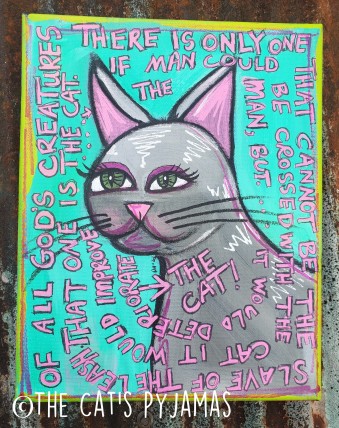 OF ALL GOD'S CREATURES
THERE IS ONLY ONE
THAT CANNOT BE THE
SLAVE OF THE
LEASH THAT ONE IS THE CAT.
IF MAN COULD
BE CROSSED WITH THE
CAT IT WOULD
IMPROVE
THE
MAN, BUT
IT WOULD
DETERIORATE
THE
CAT!
©THE CAT'S PYJAMAS